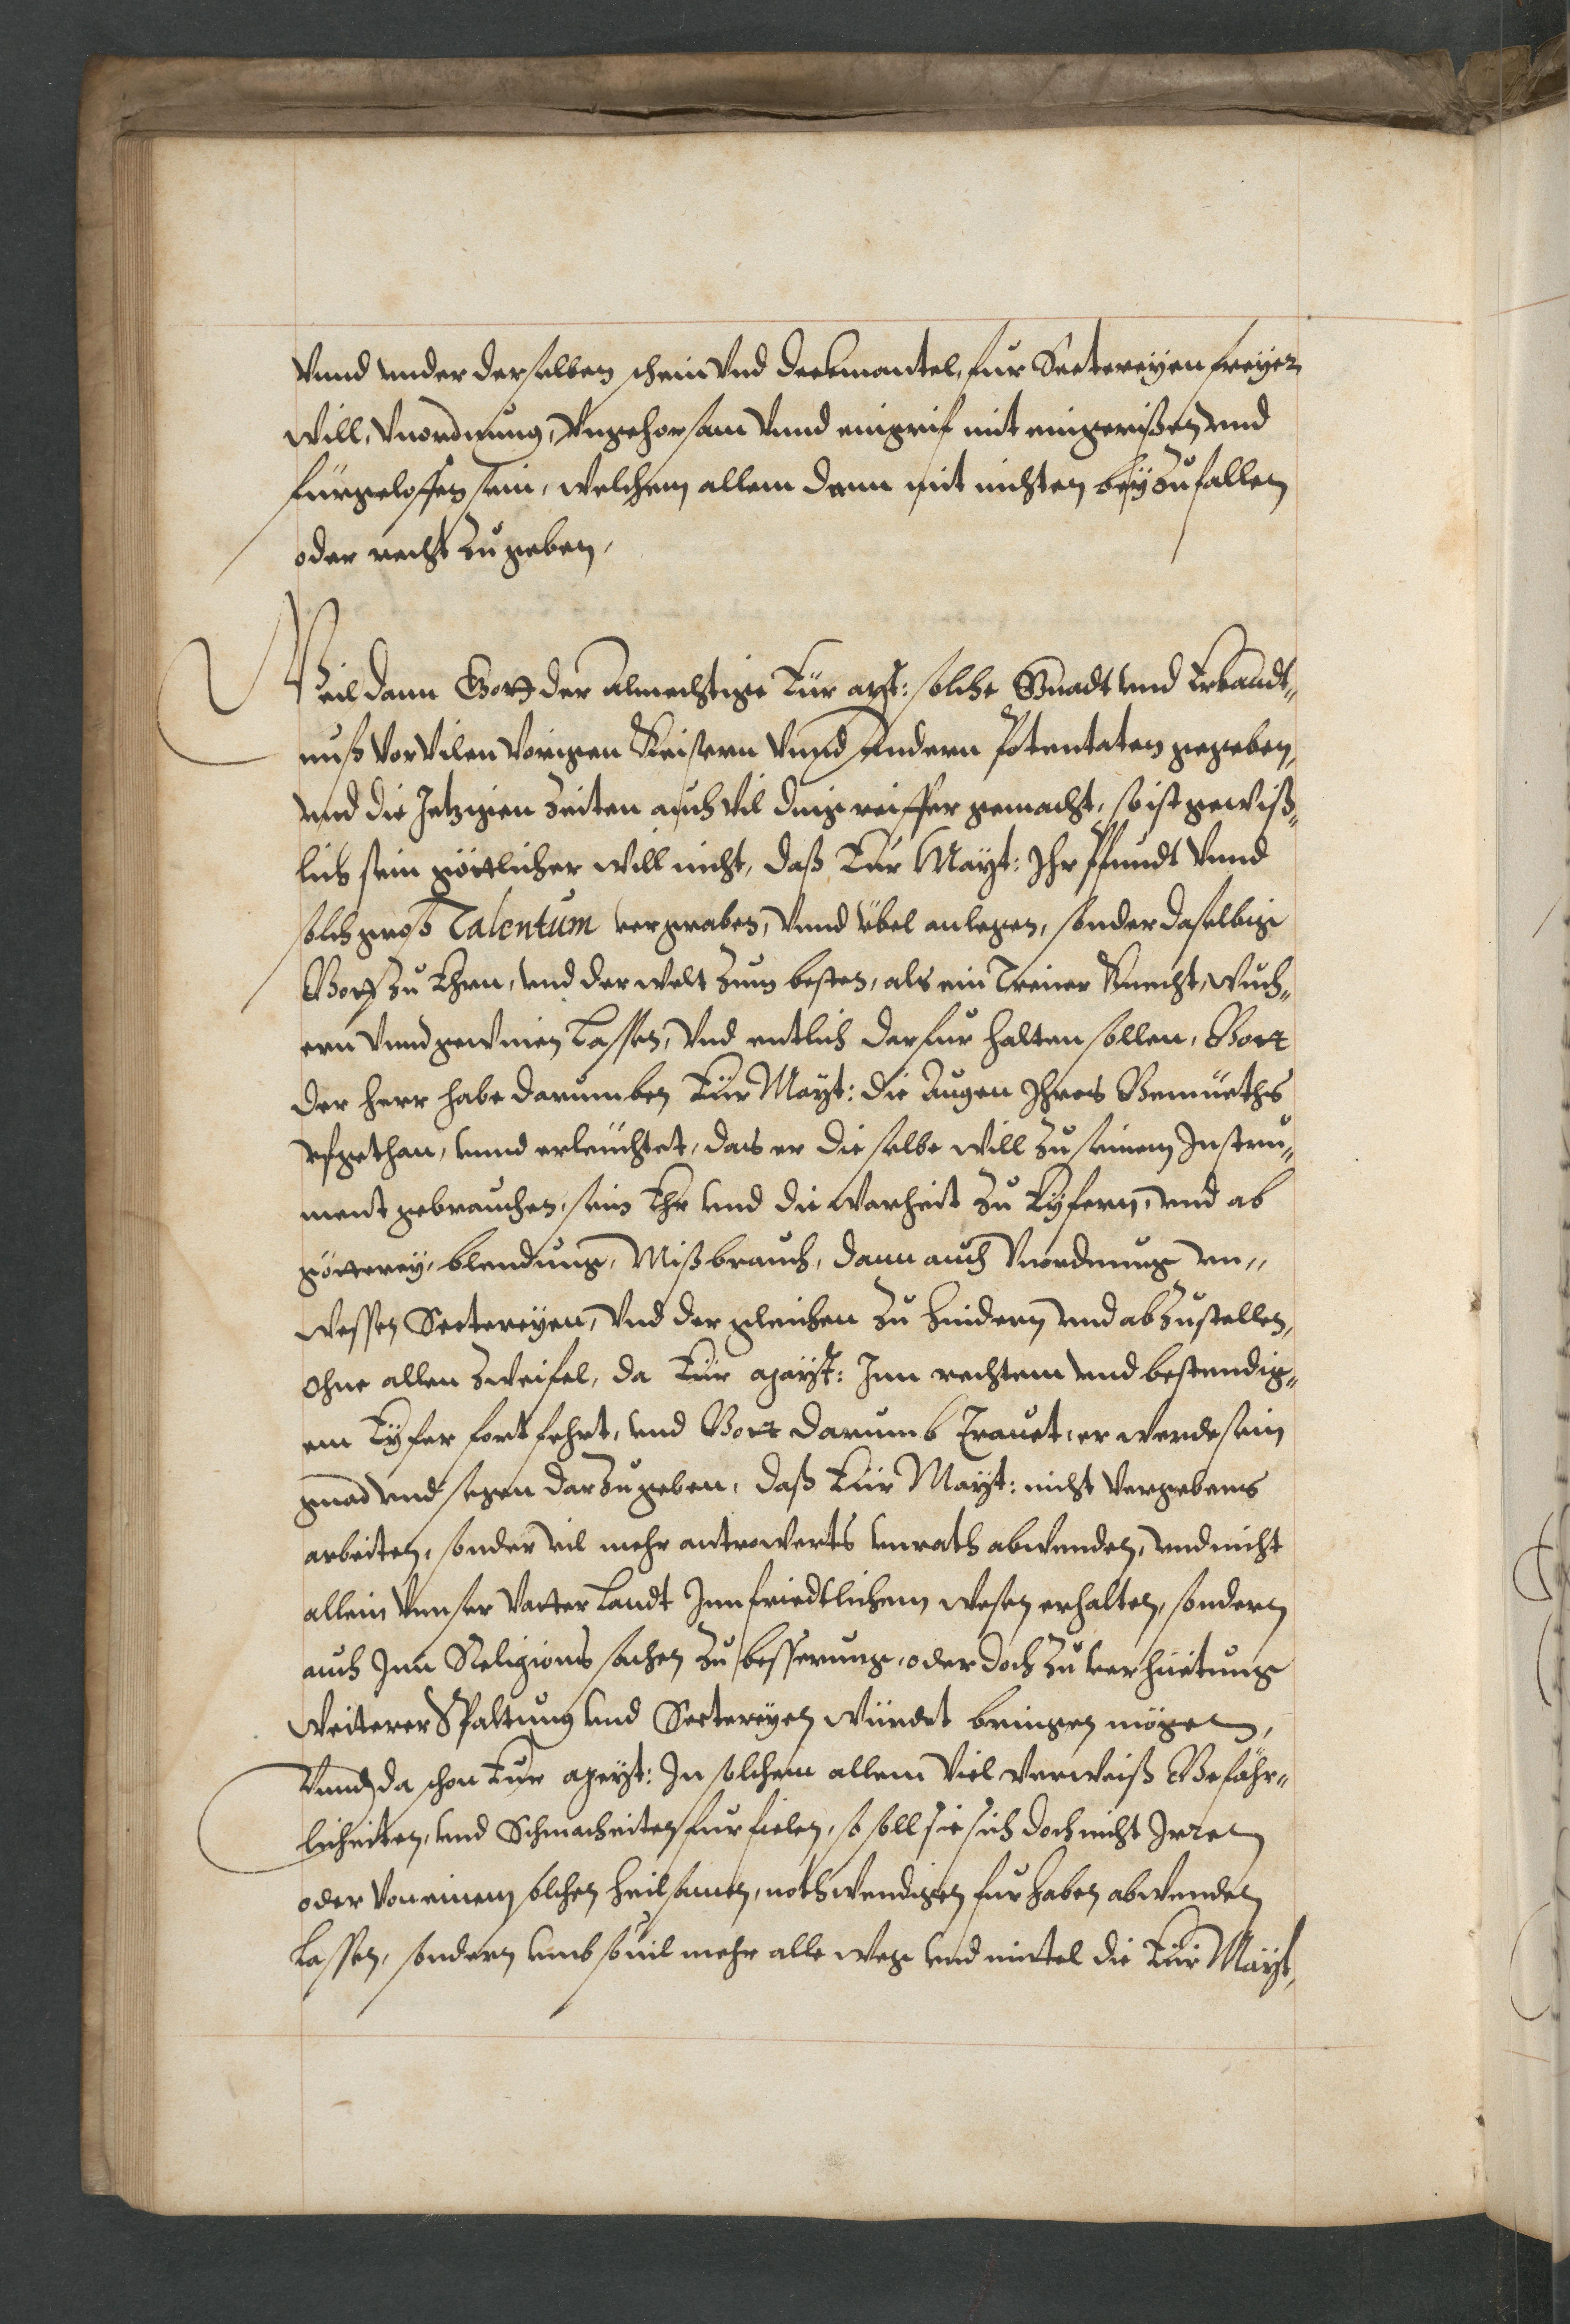 Vnnd vnder derselben schein vnd deckmantel, fur Sectereyen freyer
will, Vnordnung, Vngehorsam vnnd eingrif mit eingerissen vnd
fürgeloffen sein, welchem allem dann mit nichten beyzufallen
oder recht zugeben,
Weil dann Gott der Almechtige Eür Mayt: solche Gnadt vnd Erkandt„
nuß vor vilen vorigen Keisern vnnd Andern Potentaten gegeben,
vnd die Jetzigen Zeiten auch vil ding reiffer gemacht, so ist gewiß„
lich sein göttlicher will nicht, daß Eür Mayt: Ihr Pfundt vnnd
solch groß Talentum vergraben, vnnd übel anlegen, sonder daselbige
Gott zu Ehren, vnd der welt zum besten, als ein Treuer Knecht, wuch„
ern vnnd gewinen Lassen, Vnd entlich darfur halten sollen, Gott
der Herr habe darumben Eür Mayt: die Augen Ihres Gemüeths
vfgethan, vnnd erleüchtet, das er die selbe will zu seinem Instru„
ment gebrauchen, sein Ehr vnd die warheit zu Eyfern, vnd ab
götterey, blendung, Mißbrauch, dann auch Vnordnung vn„
wessen Sectereyen, Vnd dergleichen zu hindern vnd abzustellen,
Ohne allen Zweifel, da Eür Mayst: Inn rechtem vnd bestendig„
em Eyfer fortfehrt, vnd Gott darumb Trauet, er werde sein
gnad vnd segen darzugeben, daß Eür Mayt: nicht vergebens
arbeiten, sonder vil mehr antwerts vnrath abwenden, vnd nicht
allein Vnser Vatter Landt Inn friedtlichem wesen erhalten, sondern
auch Inn Religions sachen zu besserung, oder doch zu verhüetung
weiterer Spaltung vnd Sectereyen würdet bringen mögen,
Vnnd da schon Eur Mayst: In solchem allem viel verweiß Gefähr„
licheiten, vnd Schmacheiten furfielen, so soll sie sich doch nicht Irren
oder von einem solchen heilsamen, nothwendigen furhaben abwenden
Lassen, sondern vmb souil mehr alle weg vnd mittel die Eür Mayt,